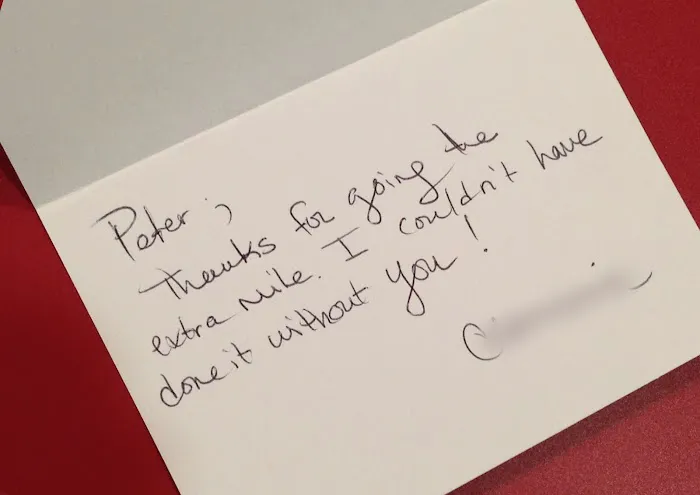 Peter;
Thanks for going the
extra mile. I couldn't have
done it without you!